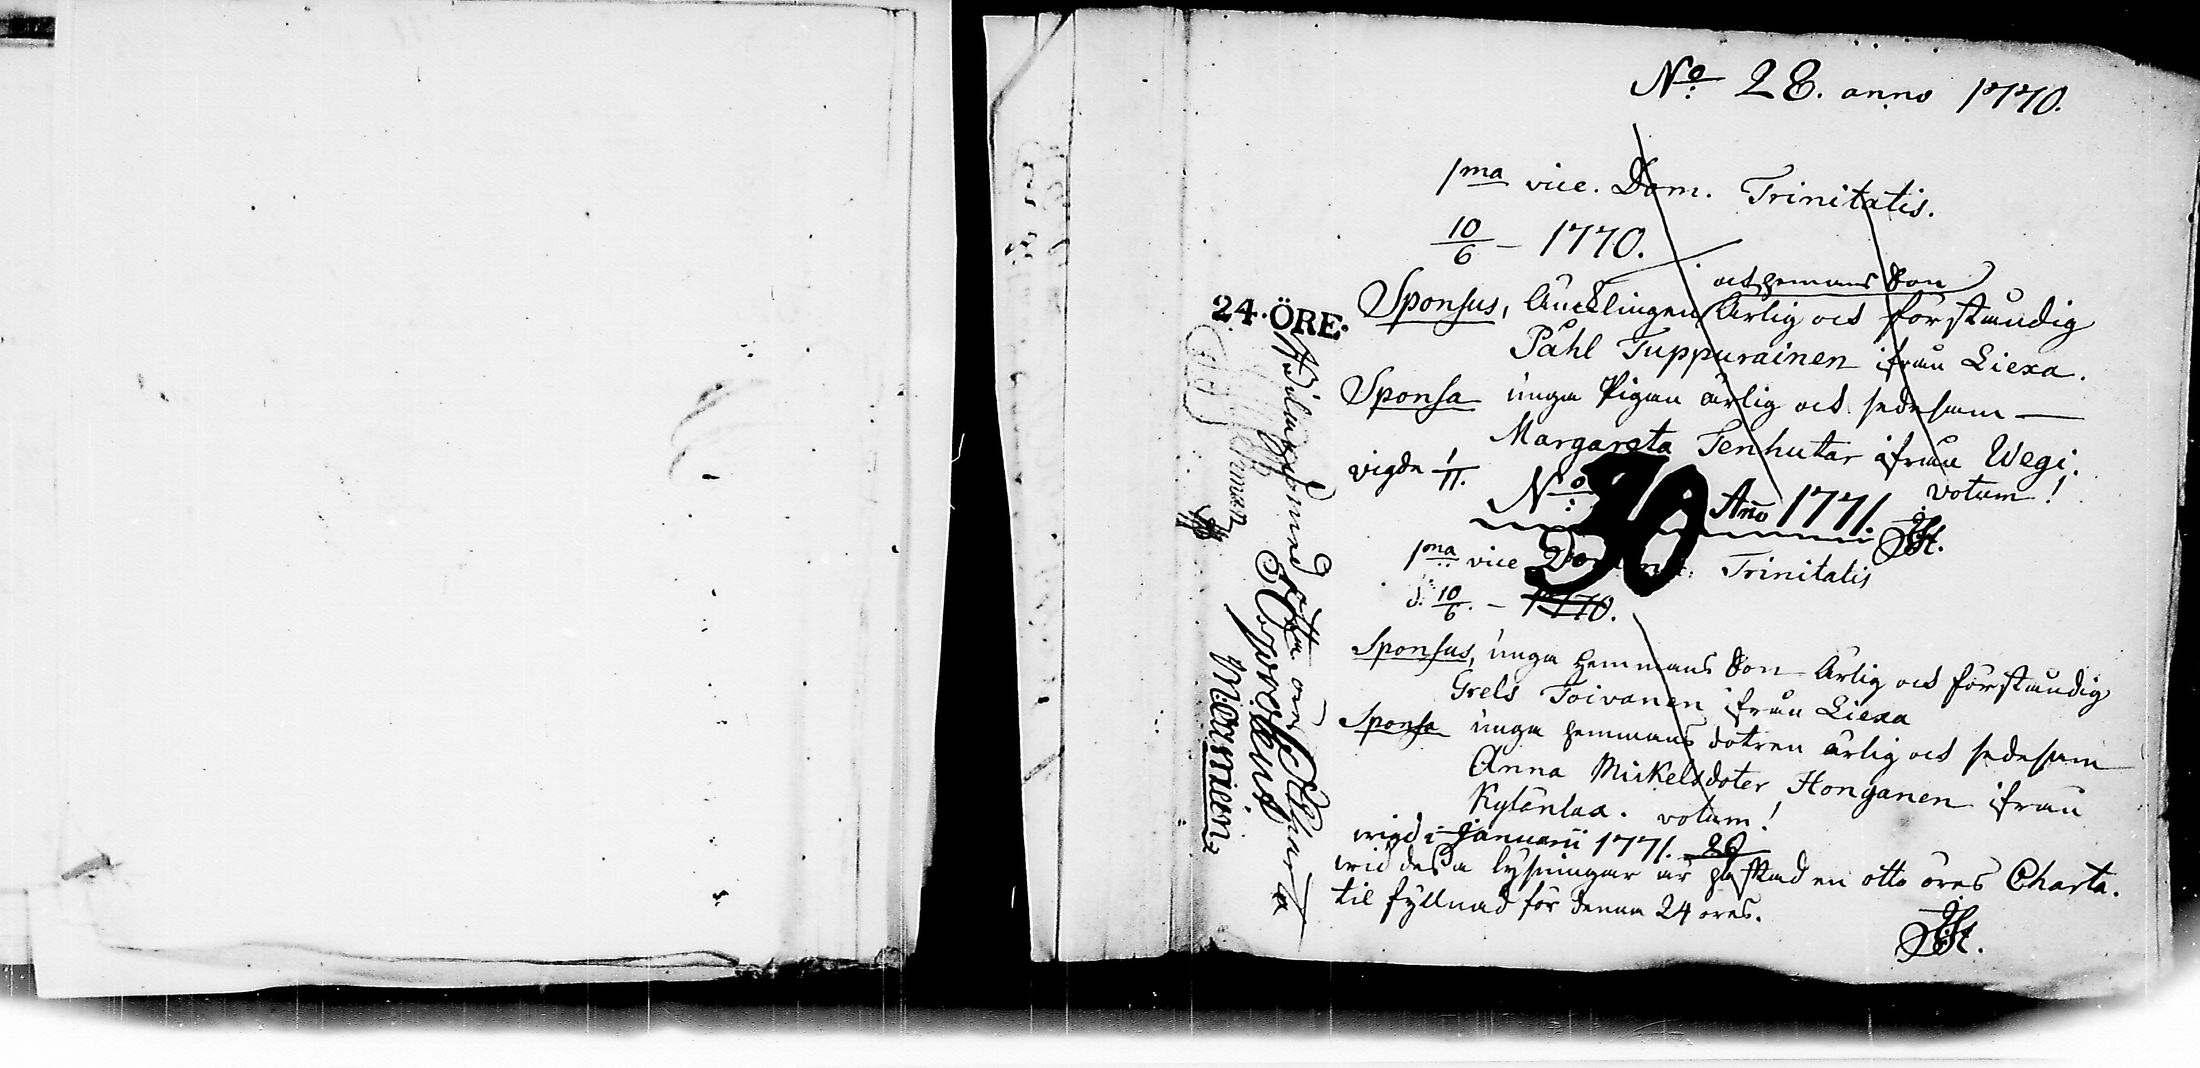 No 28. anno 1770.
1ma vice. Dom. Trinitatis.
10/6 – 1770.
och hemans Son
Sponsus, Äncklingen Ärlig och förståndig
Påhl Tuppurainen ifrån Liexa.
Sponsa unga Pigan ärlig och sedesam
Margareta Tenhutar ifrån Wegi.
vigde 1/11. votum!
No 30 Año 1771.
1ma vice Trinitatis
d. 10/6. – 1770.
Sponsus, unga hemmans Son Ärlig och förståndig
Grels Toivanen ifrån Liexa
Sponsa unga hemmans dotren ärlig och sedesam
Anna Mickelsdoter Honganen ifrån
Kylänlax. votum!
wigd i Januarii 1771. 26
wid dessa lysningar är påstad en otto öres Charta.
til fyllnad för denna 24 öres.
24·ÖRE·
med otta öre